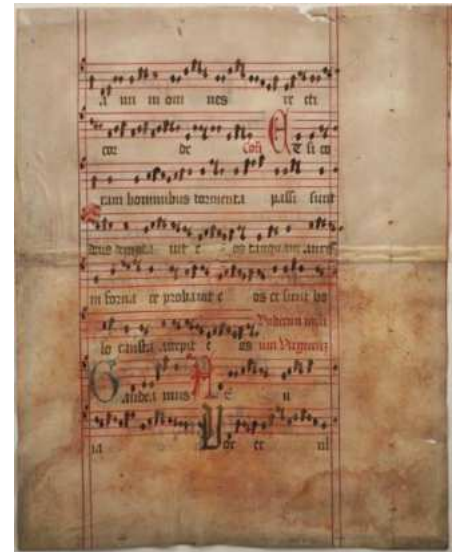 a mi ni om nes re cti
cor de Co Et si co
ram hominibus tormenta passi sunt
deus tempta uit e os tanquam auru
in forna ce probauit e os et sicut ho
Vndecim mili
lo causta accepit e os um Virginu
Gaude a mus A e u
ia Vox ex ul